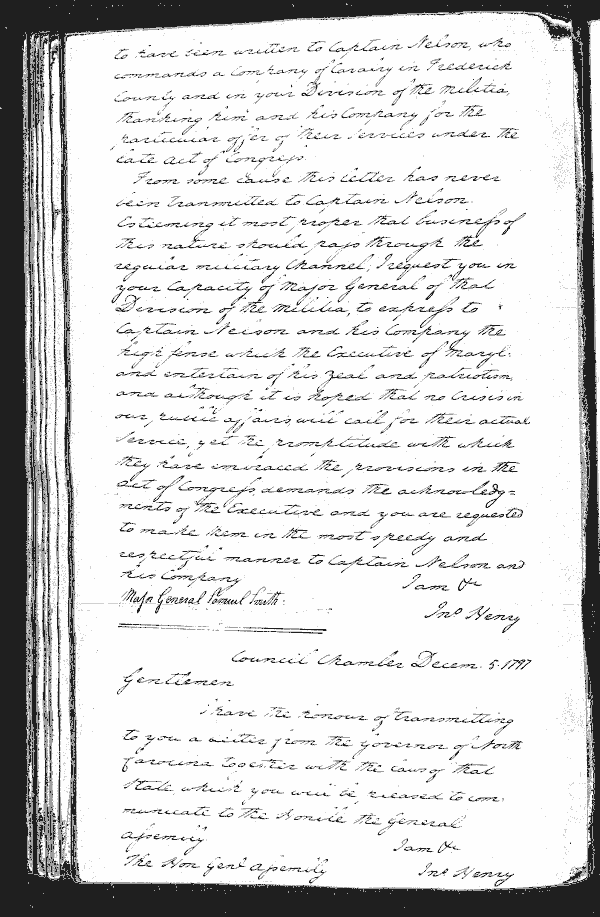 to have been written to Captain Nelson, who
commands a Company of Cavalry in Frederick
County and in your Division of the Militia,
thanking him and his Company for the
particular offer of their Services under the
late Act of Congress.
From some cause this letter has never
been transmitted to Captain Nelson.
Esteeming it most proper that business of
this nature should pass through the
regular military Channel, I request you in
your Capacity of Major General of that
Division of the Militia, to express to
Captain Nelson and his Company the
high sense which the Executive of Maryl-
and entertain of his Zeal and patriotism,
and although it is hoped that no Crisis in
our public affairs, will call for their actual
Service, yet the promptitude with which
they have embraced the provisions in the
Act of Congress demands the acknowledg=
ments of the Executive and you are requested
to make them in the most speedy and
respectful manner to Captain Nelson and
his Company
I am &c
Major General Samuel Smith.
Jno Henry
Council Chamber Decem. 5. 1797
Gentlemen
I have the honour of transmitting
to you a letter from the Governor of North
Carolina together with the Laws of that
State, which you will be pleased to com-
municate to the Honble the General
Assembly
I am &c
The Hon Genl Assembly
Jno Henry